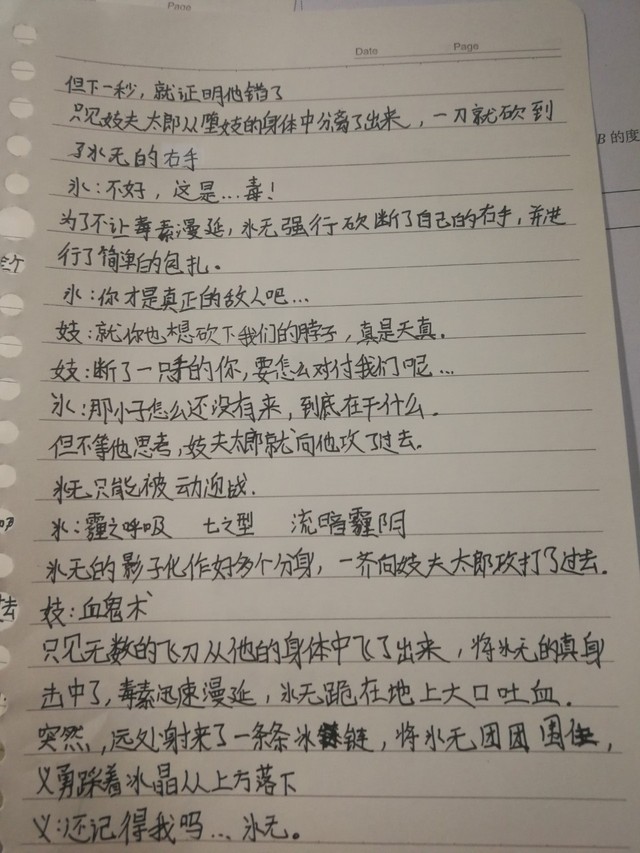 Page
Date Page
但下一秒，就证明他错了
只见妓夫太郎从堕妓的身体中分离了出来，一刀就砍到
B 的度
了冰无的右手
冰：不好，这是…毒！
为了不让毒素漫延，冰无强行砍断了自己的右手，并进
行了简单的包扎。
冰：你才是真正的敌人吧…
妓：就你也想砍下我们的脖子，真是天真．
妓：断了一只手的你，要怎么对付我们呢…
冰：那小子怎么还没有来，到底在干什么．
但不等他思考，妓夫太郎就向他攻了过去．
冰无只能被动迎战．
冰：霾之呼吸 七之型 流暗霾阴
冰无的影子化作好多个分身，一齐向妓夫太郎攻打了过去．
妓：血鬼术
只见无数的飞刀从他的身体中飞了出来，将冰无的真身
击中了，毒素迅速漫延，冰无跪在地上大口吐血．
突然，远处射来了一条条冰链，将冰无团团围住，
义勇踩着冰晶从上方落下
义：还记得我吗… 冰无。